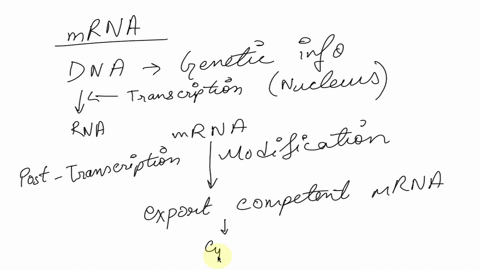 mRNA
DNA → Genetic info
← Transcription (Nucleus)
RNA
mRNA
Post-Transcription Modification
export competent mRNA
Cy